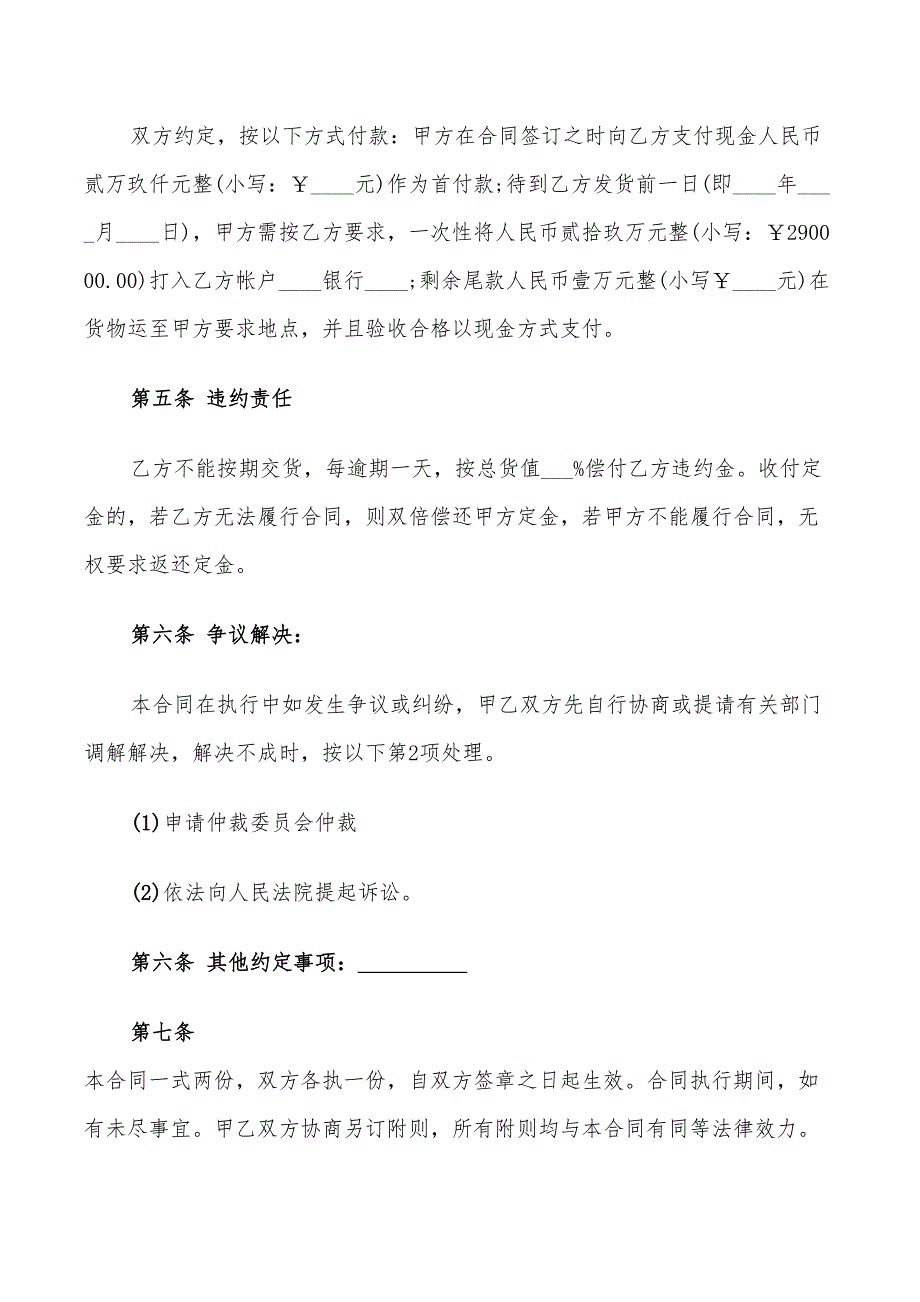 双方约定，按以下方式付款：甲方在合同签订之时向乙方支付现金人民币
贰万玖仟元整(小写：￥____元)作为首付款;待到乙方发货前一日(即____年___
_月____日)，甲方需按乙方要求，一次性将人民币贰拾玖万元整(小写：￥2900
00.00)打入乙方帐户____银行____;剩余尾款人民币壹万元整(小写￥____元)在
货物运至甲方要求地点，并且验收合格以现金方式支付。
第五条 违约责任
乙方不能按期交货，每逾期一天，按总货值___%偿付乙方违约金。收付定
金的，若乙方无法履行合同，则双倍偿还甲方定金，若甲方不能履行合同，无
权要求返还定金。
第六条 争议解决：
本合同在执行中如发生争议或纠纷，甲乙双方先自行协商或提请有关部门
调解解决，解决不成时，按以下第2项处理。
(1)申请仲裁委员会仲裁
(2)依法向人民法院提起诉讼。
第六条 其他约定事项：__________
第七条
本合同一式两份，双方各执一份，自双方签章之日起生效。合同执行期间，如
有未尽事宜。甲乙双方协商另订附则，所有附则均与本合同有同等法律效力。